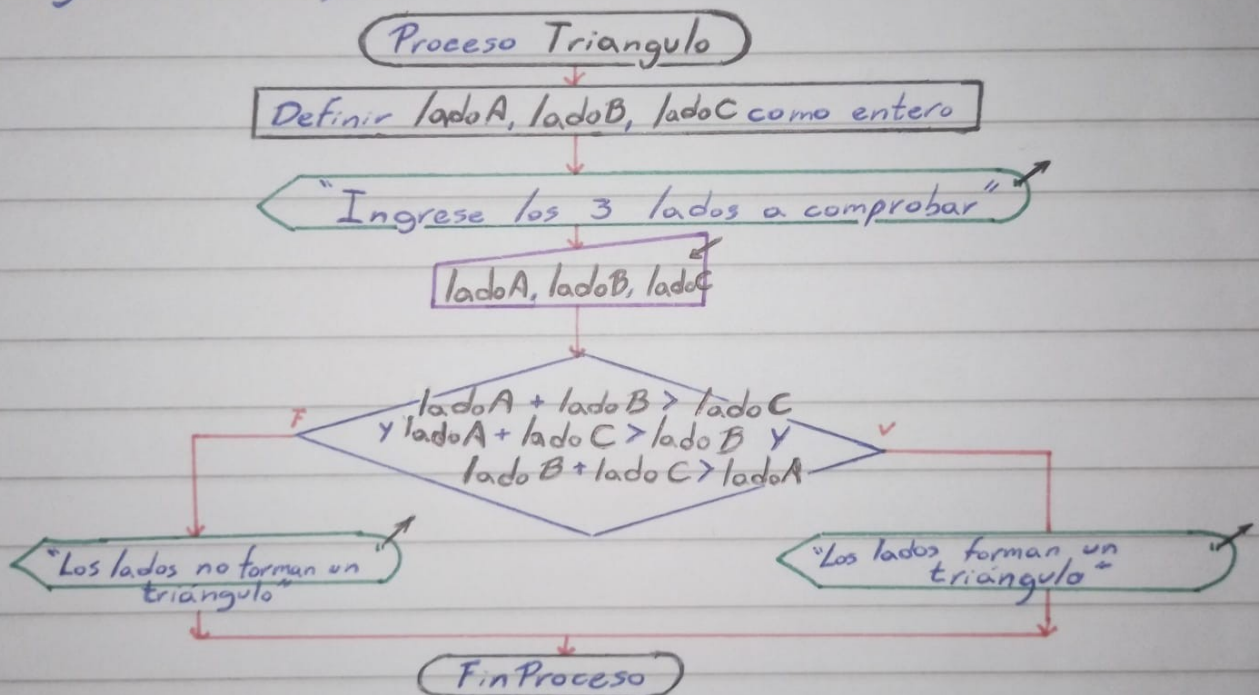 Proceso Triangulo
Definir ladoA, ladoB, ladoC como entero
"Ingrese los 3 lados a comprobar"
ladoA, ladoB, ladoC
ladoA + ladoB > ladoC
y ladoA + ladoC > ladoB y
ladoB + ladoC > ladoA
F
V
"Los lados no forman un
triángulo"
"Los lados forman un
triángulo"
FinProceso